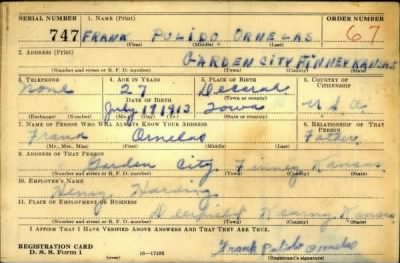 SERIAL NUMBER 1. NAME (Print) ORDER NUMBER
747 FRANK PULIDO ORNELAS 67
(First) (Middle) (Last)
2. ADDRESS (Print)
GARDEN CITY FINNEY KANSAS
(Number and street or R. F. D. number) (Town) (County) (State)
3. TELEPHONE 4. AGE IN YEARS 5. PLACE OF BIRTH 6. COUNTRY OF CITIZENSHIP
None 27 Decorah
DATE OF BIRTH (Town or county)
July 17 1913 Iowa U S A
(Exchange) (Number) (Mo.) (Day) (Yr.) (State or country)
7. NAME OF PERSON WHO WILL ALWAYS KNOW YOUR ADDRESS 8. RELATIONSHIP OF THAT PERSON
Frank Ornelas Father
(Mr., Mrs., Miss) (First) (Middle) (Last)
9. ADDRESS OF THAT PERSON
Garden City Finney Kansas
(Number and street or R. F. D. number) (Town) (County) (State)
10. EMPLOYER'S NAME
Henry
11. PLACE OF EMPLOYMENT OR BUSINESS
Deerfield Kearny Kansas
(Number and street or R. F. D. number) (Town) (County) (State)
I AFFIRM THAT I HAVE VERIFIED ABOVE ANSWERS AND THAT THEY ARE TRUE.
REGISTRATION CARD
D. S. S. Form 1 16-17105 Frank Pulido Ornelas
(Registrant's signature)